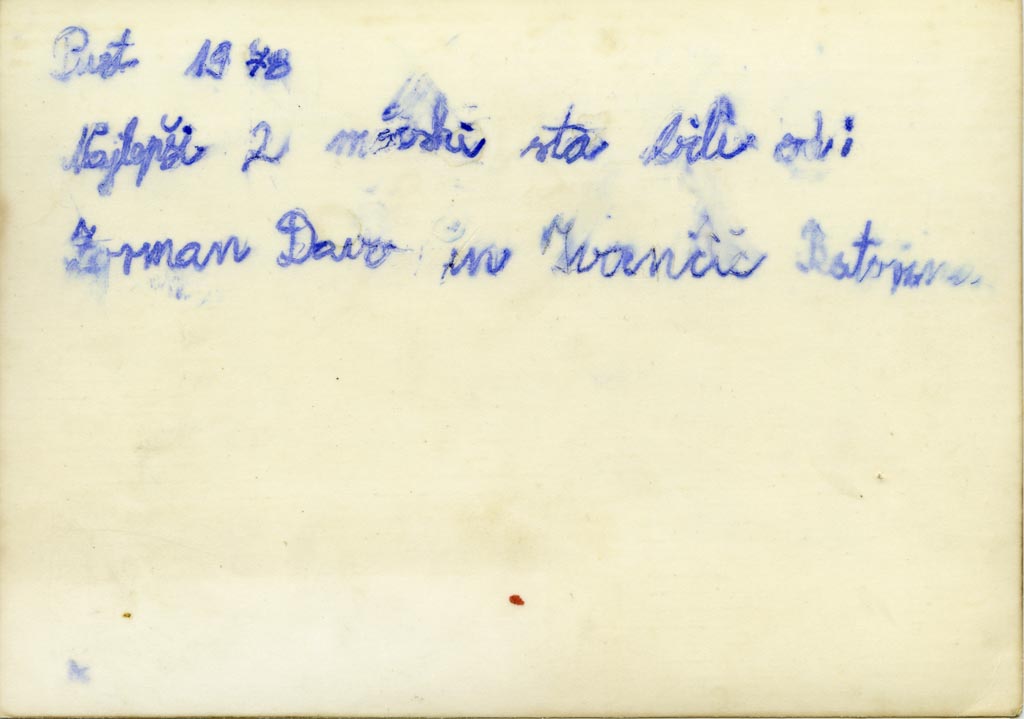 Pust 1978
Najlepši 2 maski sta bili od:
Zorman Davo in Ivančič